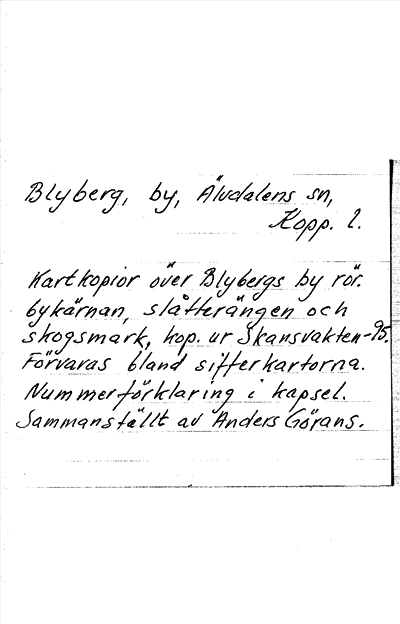 Blyberg, by, Älvdalens sn,
Kopp. l.
Kartkopior över Blybergs by rör.
bykärnan, slåtterängen och
skogsmark, kop. ur Skansvakten-95.
Förvaras bland sifferkartorna.
Nummerförklaring i kapsel.
Sammanställt av Anders Görans.